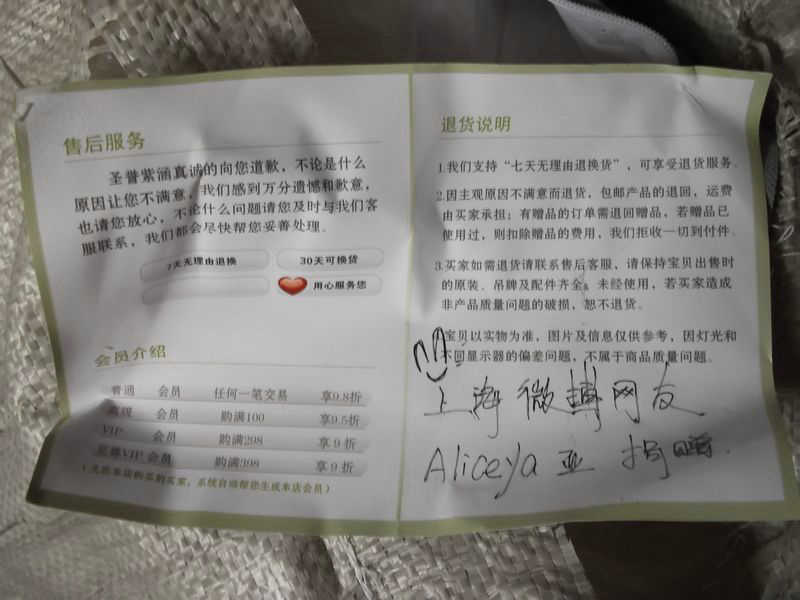 售后服务
圣誉紫涵真诚的向您道歉，不论是什么
原因让您不满意，我们感到万分遗憾和歉意，
也请您放心，不论什么问题请您及时与我们客
服联系，我们都会尽快帮您妥善处理。
7天无理由退换
30天可换货
用心服务您
会员介绍
普通 会员 任何一笔交易 享9.8折
高级 会员 购满100 享9.5折
VIP 会员 购满298 享 9 折
至尊VIP 会员 购满398 享 9 折
（凡在本店购买的买家，系统自动帮您生成本店会员）
退货说明
1.我们支持“七天无理由退换货”，可享受退货服务。
2.因主观原因不满意而退货，包邮产品的退回，运费
由买家承担；有赠品的订单需退回赠品，若赠品已
使用过，则扣除赠品的费用，我们拒收一切到付件。
3.买家如需退货请联系售后客服，请保持宝贝出售时
的原装、吊牌及配件齐全。未经使用，若买家造成
非产品质量问题的破损，恕不退货。
宝贝以实物为准，图片及信息仅供参考，因灯光和
不同显示器的偏差问题，不属于商品质量问题。
上海微博网友
Aliceya 亚 捐赠.